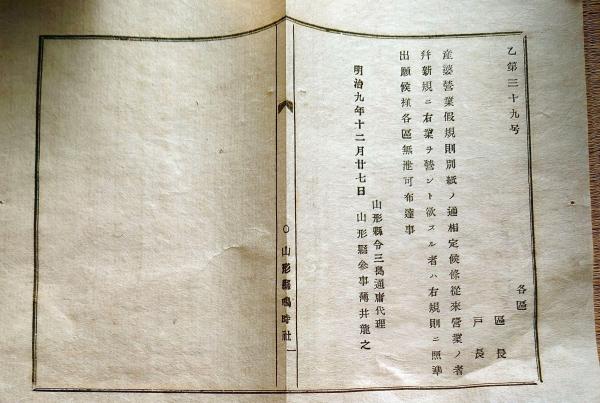 乙第三十九号
各區
區長
戸長
産婆營業假規則別紙ノ通相定候條從來營業ノ者
幷新規ニ右業ヲ營ント欲スル者ハ右規則ニ照準
出願候樣各區無洩可布達事
明治九年十二月廿七日
山形縣令三島通庸代理
山形縣參事薄井龍之
○山形縣鳴時社